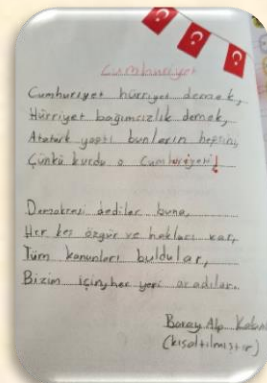 Cumhuriyet
Cumhuriyet hürriyet demek,
Hürriyet bağımsızlık demek,
Atatürk yaptı bunların hepsini,
Çünkü kurdu o Cumhuriyeti!
Demokrasi dediler buna,
Her kes özgür ve hakları var,
Tüm kanunları buldular,
Bizim için, her yeri aradılar.
Boray Alp
(kısaltılmıştır)